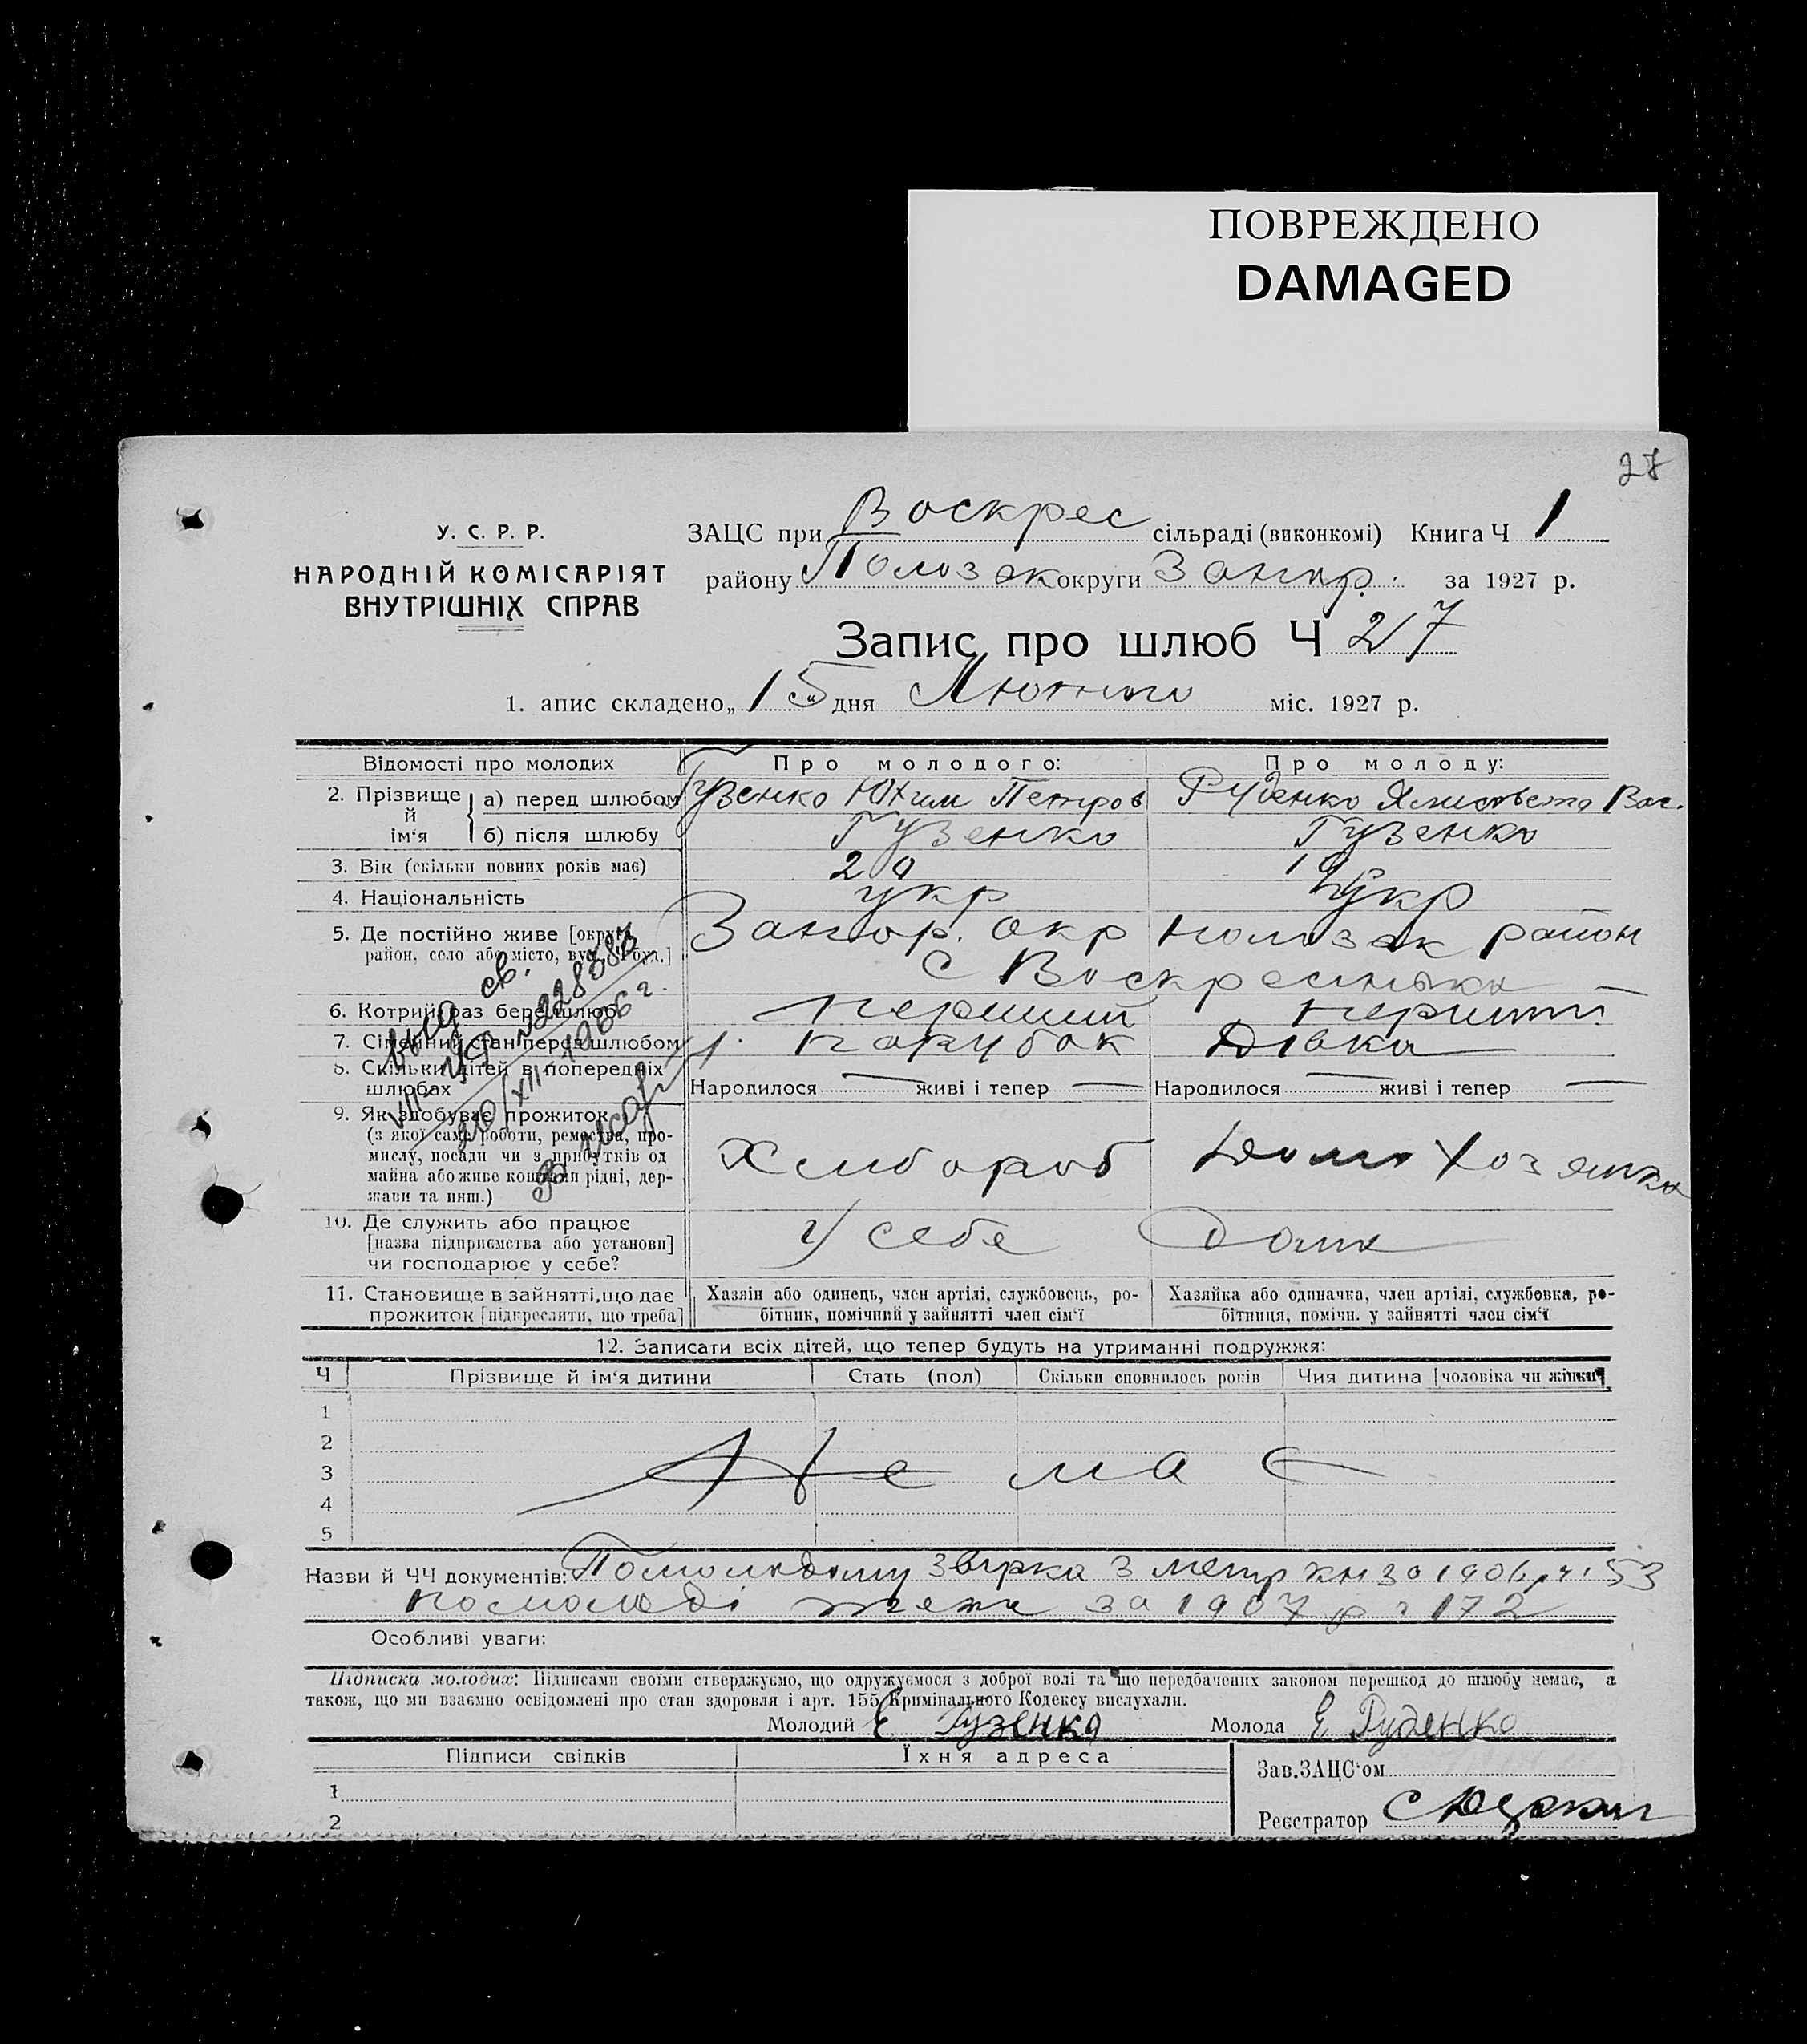 ПОВРЕЖДЕНО
DAMAGED
28
У. С. Р. Р.
НАРОДНІЙ КОМІСАРІЯТ
ВНУТРІШНІХ СПРАВ
ЗАЦС при Воскрес сільраді (виконкомі) Книга Ч 1
району Полозак округи Запор. за 1927 р.
Запис про шлюб Ч 27
1. апис складено „15“ дня Лютого міс. 1927 р.
Відомості про молодих Про молодого: Про молоду:
2. Прізвище й ім'я а) перед шлюбом Гузенко Юхим Петров Руденко Ялисовета Вас.
б) після шлюбу Гузенко Гузенко
3. Вік (скільки повних років має) 20 19
4. Національність укр укр
5. Де постійно живе [округа, район, село або місто, вул., Ч буд.] Запор. окр Полозак район
с Воскресенька
6. Котрий раз бере шлюб перший перший
7. Сімейний стан перед шлюбом парубок Дівка
8. Скільки дітей в попередніх шлюбах Народилося — живі і тепер — Народилося — живі і тепер —
9. Як здобуває прожиток
(з якої саме роботи, ремества, про-
мислу, посади чи з прибутків од
майна або живе коштом рідні, дер-
жави та инш.) Хлібороб Домохозяйка
10. Де служить або працює
[назва підприємства або установи]
чи господарює у себе? у себе Дома
выд св.
УР № 228383
20/XII-1966 г.
11. Становище в зайнятті, що дає
прожиток [підкреслити, що треба]
Хазяін або одинець, член артілі, службовець, ро-
бітник, помічний у зайнятті член сім'ї
Хазяйка або одиначка, член артілі, службовка, ро-
бітниця, помічн. у зайнятті член сім'ї
12. Записати всіх дітей, що тепер будуть на утриманні подружжя:
Ч Прізвище й ім'я дитини Стать (пол) Скільки сповнилось років Чия дитина [чоловіка чи жінки]
1
2
3 Не ма є
4
5
Назви й ЧЧ документів: Помолодому звірка з метр кн за 1906 р. ч. 53
помолоді теж за 1907 р ч 172
Особливі уваги:
Підписка молодих: Підписами своїми стверджуємо, що одружуємося з доброї волі та що передбачених законом перешкод до шлюбу немає, а
також, що ми взаємно освідомлені про стан здоровля і арт. 155 Кримінального Кодексу вислухали.
Молодий Е Гузенко Молода Е Руденко
Підписи свідків Їхня адреса
Зав. ЗАЦС'ом
1
Реєстратор
2